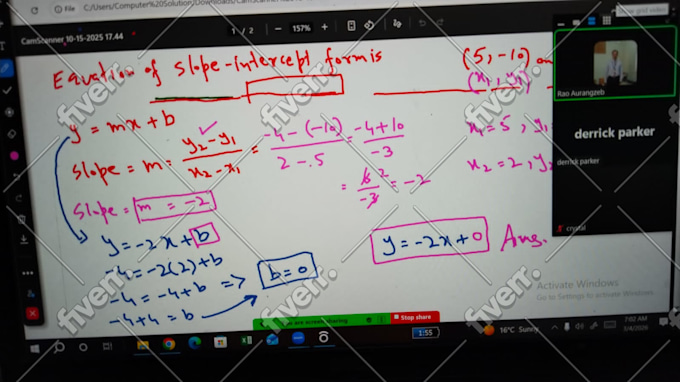 File C:/Users/Computer%20Solution/Downloads/CamScanner
CamScanner 10-15-2025 17.44
1 / 2 — 157% +
Equation of slope-intercept form is
(5, -10) an
(x₁, y₁)
y = mx + b
slope = m = y₂-y₁ / x₂-x₁ = -4-(-10) / 2-5 = -4+10 / -3
x₁=5, y₁
x₂=2, y₂
= 6 2 / -3 = -2
slope = m = -2
y = -2x + b
y = -2x + 0 Ans.
-4 = -2(2) + b
-4 = -4 + b => b = 0
-4 + 4 = b
Rao Aurangzeb
derrick parker
derrick parker
crystal
Activate Windows
Go to Settings to activate Windows.
are screen sharing
Stop share
1:55
16°C Sunny
7:02 AM
fiverr.
fiverr.
fiverr.
fiverr.
fiverr.
fiverr.
fiverr.
fiverr.
fiverr.